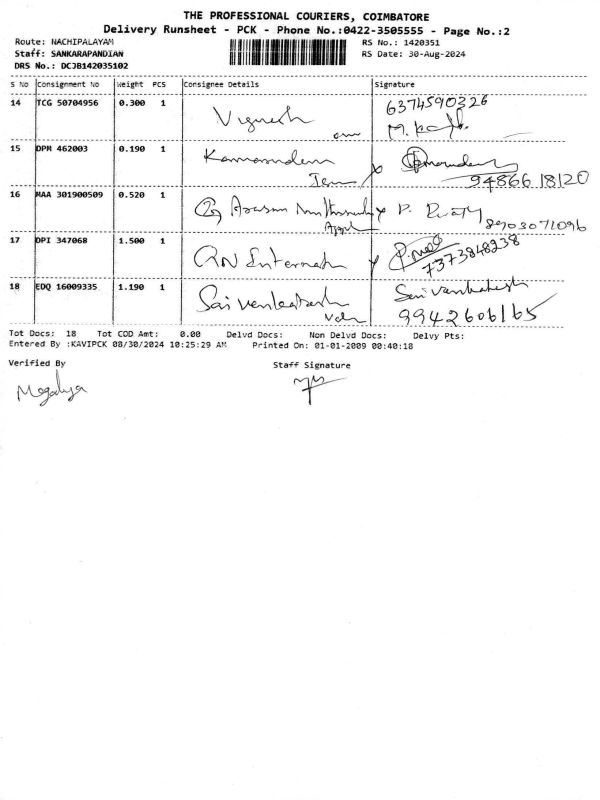 THE PROFESSIONAL COURIERS, COIMBATORE
Delivery Runsheet - PCK - Phone No.:0422-3505555 - Page No.:2
Route: NACHIPALAYAM RS No.: 1420351
Staff: SANKARAPANDIAN RS Date: 30-Aug-2024
DRS No.: DCJB142035102
S No Consignment No Weight PCS Consignee Details Signature
14 TCG 50704956 0.300 1 Vignesh 6374590326
15 DPM 462003 0.190 1
9486618120
16 MAA 301900509 0.520 1
8903071096
17 DPI 347068 1.500 1
7373848238
18 EDQ 16009335 1.190 1 Sai venkatesh Sai venkatesh
9942606165
Tot Docs: 18 Tot COD Amt: 0.00 Delvd Docs: Non Delvd Docs: Delvy Pts:
Entered By :KAVIPCK 08/30/2024 10:25:29 AM Printed On: 01-01-2009 00:40:18
Verified By Staff Signature